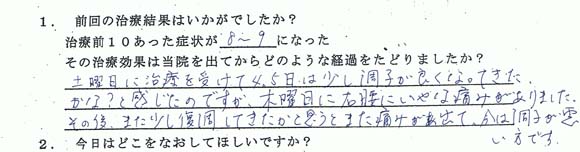 1. 前回の治療結果はいかがでしたか?
治療前10あった症状が 8〜9 になった
その治療効果は当院を出てからどのような経過をたどりましたか?
土曜日に治療を受けて4,5日は少し調子が良くなってきた
かな?と感じたのですが、木曜日に右腰にいやな痛みがありました。
その後、また少し復調してきたかと思うとまた痛みが出て、今は調子が悪
い方です。
2. 今日はどこをなおしてほしいですか?